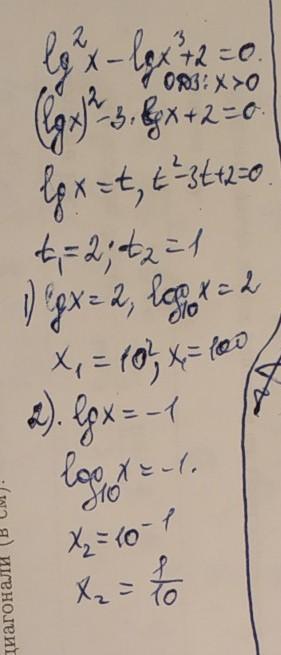 lg²x − lgx³ + 2 = 0.
ОДЗ: x > 0
(lgx)² − 3·lgx + 2 = 0
lgx = t, t² − 3t + 2 = 0.
t₁ = 2; t₂ = 1
1) lgx = 2, log₁₀x = 2
x₁ = 10², x₁ = 100
2). lgx = −1
log₁₀x = −1.
x₂ = 10⁻¹
x₂ = 1/10
диагонали (в см).